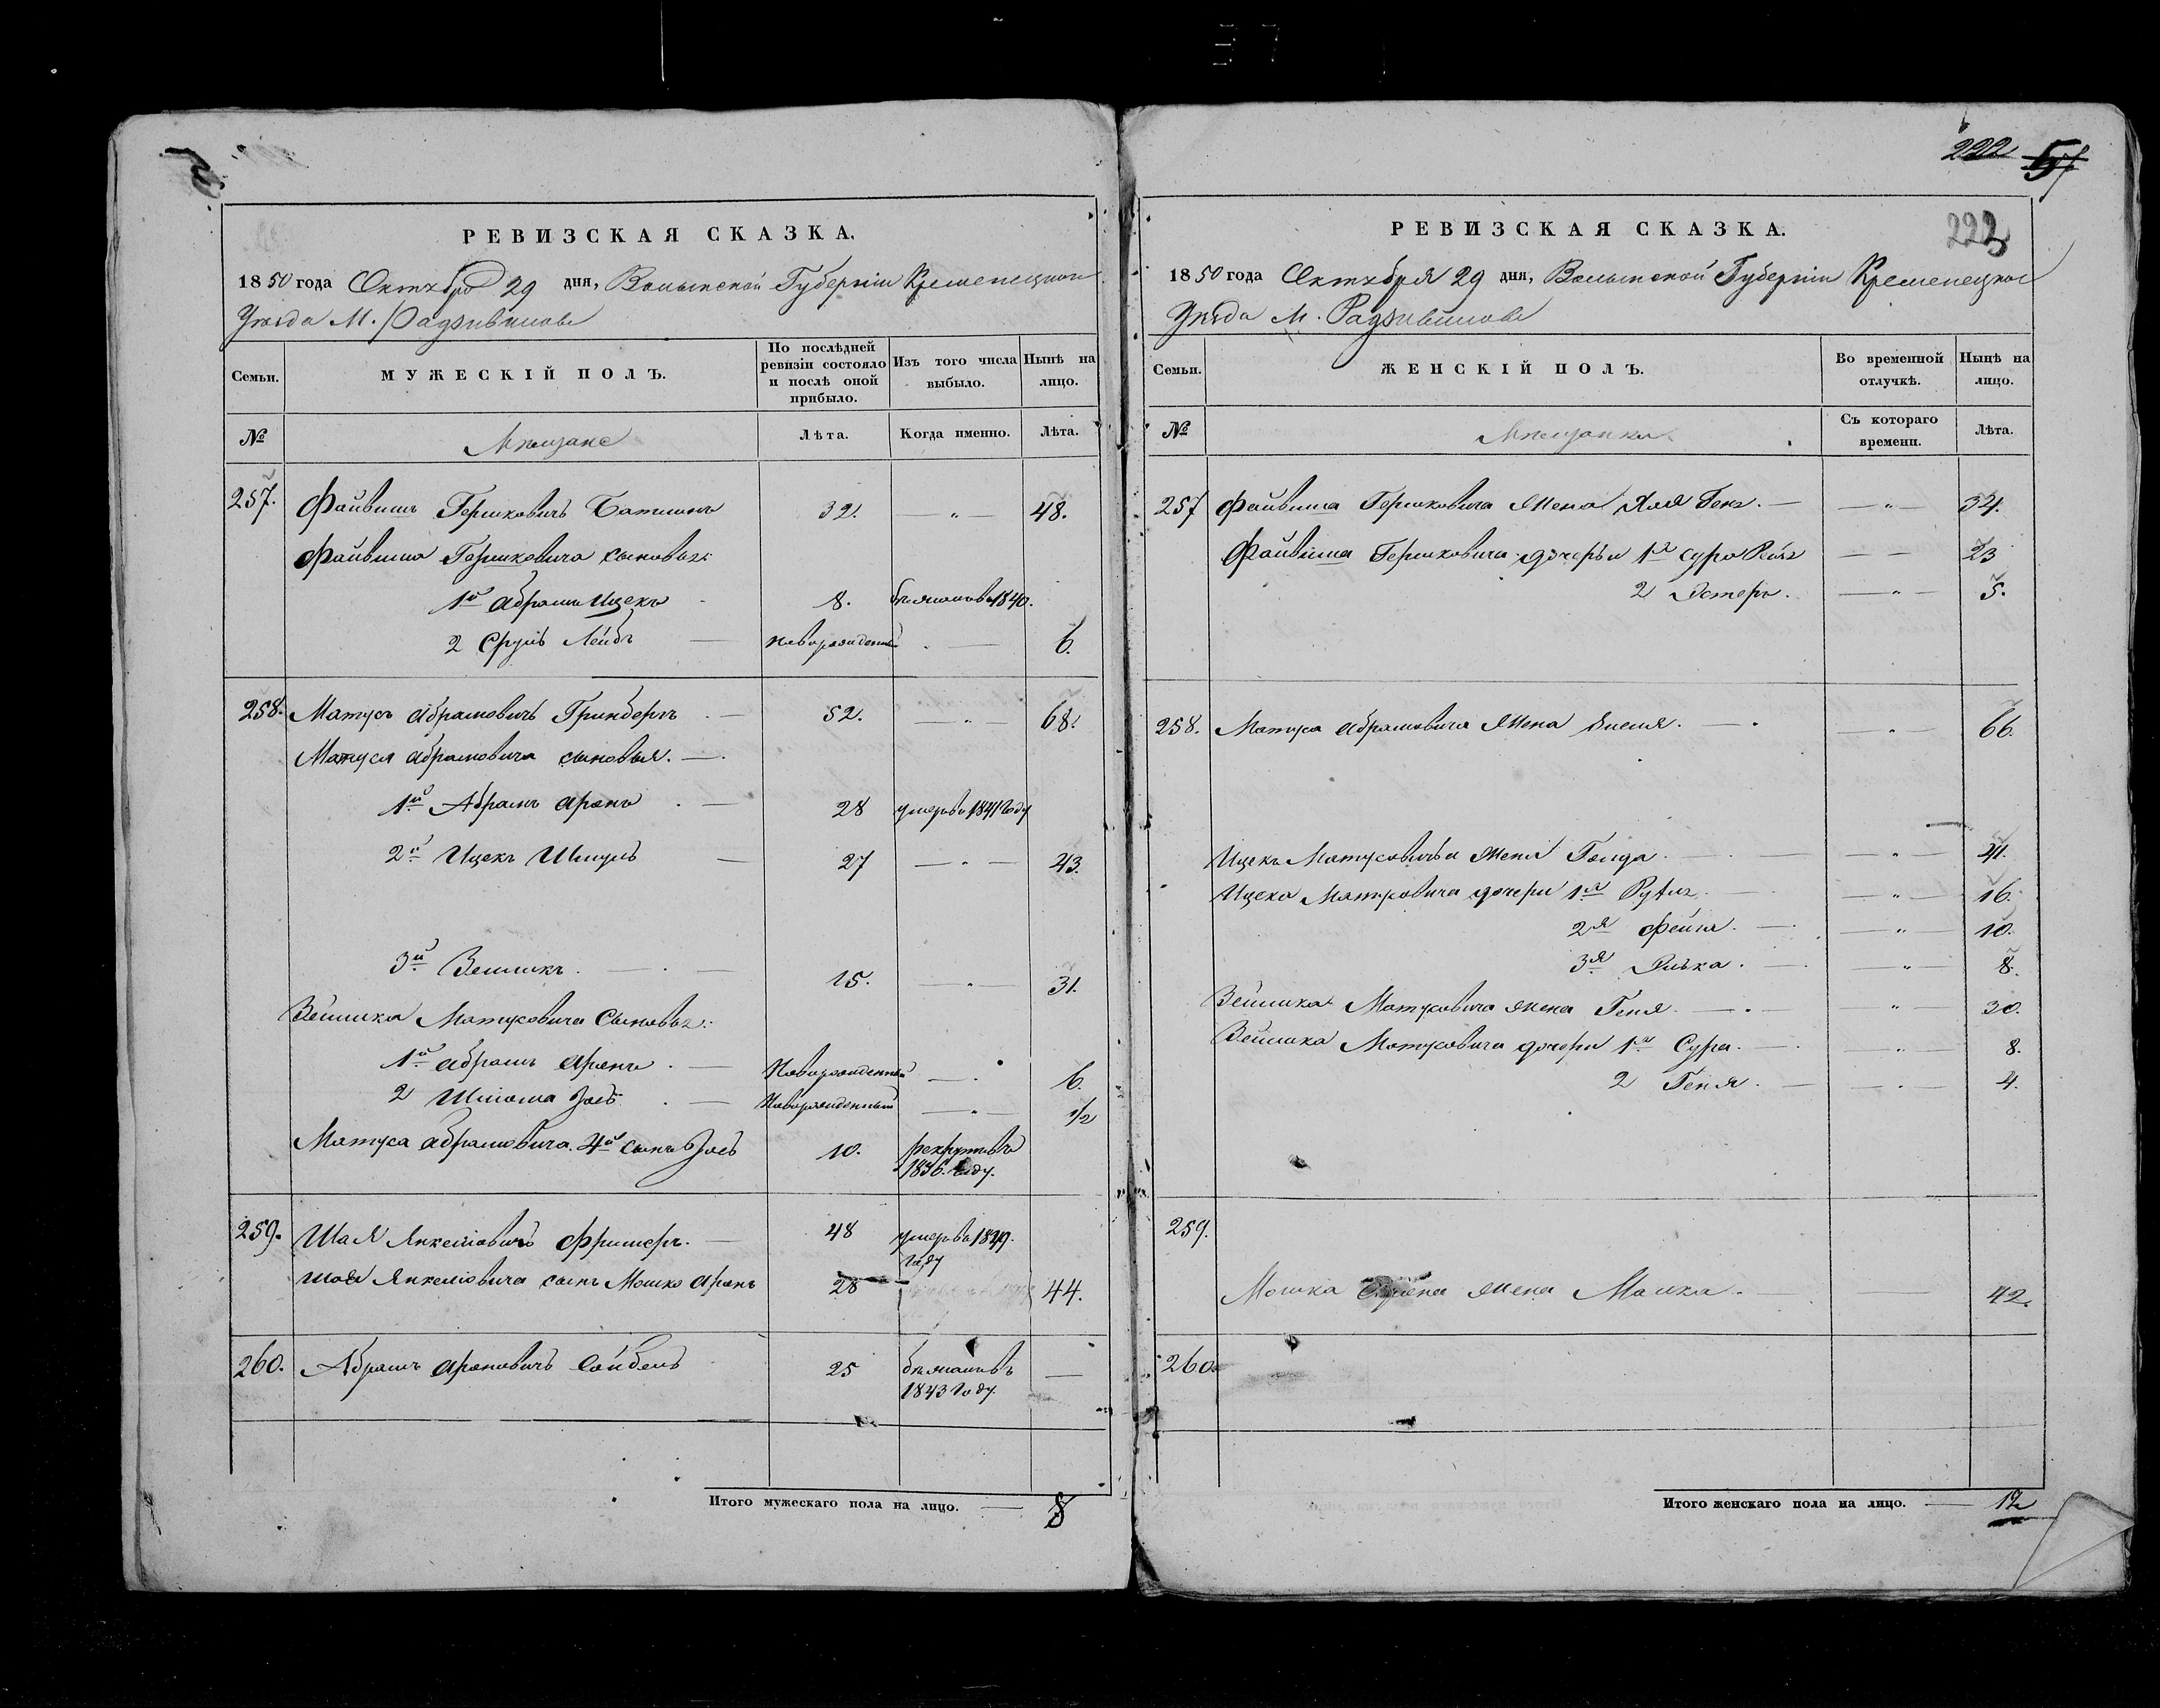 РЕВИЗСКАЯ СКАЗКА.
1850 года Октября 29 дня, Волынской Губерніи Кременецкого
Уѣзда М. Радзивилова
Семьи.
МУЖЕСКІЙ ПОЛЪ.
По послѣдней ревизіи состояло и послѣ оной прибыло.
Изъ того числа выбыло.
Нынѣ на лицо.
№
Мѣщане
Лѣта.
Когда именно.
Лѣта.
257. Файвишъ Гершковичъ 32. — „ — 48.
Файвиша Гершковича сыновья:
1й Абрамъ Ицекъ 8. бѣжалъ въ 1840.
2 Сруль Лейбъ — новорожденный — 6.
258. Матусъ Абрамовичъ Гринбергъ — 52. — „ — 68.
Матуса Абрамовича сыновья. —
1й Абрамъ Аронъ — 28 умеръ въ 1841 году
2й Ицекъ Шмуль — 27 — „ — 43.
3й Зейликъ — 15. — „ — 31.
Зейлика Матусовича Сыновья:
1й Абрамъ Аронъ — Новорожденный — 6.
2 Шлиома Іось — Новорожденный — „ — 1/2
Матуса Абрамовича 4й сынъ Іось 10. рекрутъ въ 1836. году.
259. Шая Янкелiовичъ Фришеръ. — 48 умеръ въ 1849. году
Шаи Янкелiовича сынъ Мошко Аронъ 28 44.
260. Абрамъ Ароновичъ 25 бѣжалъ въ 1843 году. —
Итого мужескаго пола на лицо. — 8
222 57
223
РЕВИЗСКАЯ СКАЗКА.
1850 года Октября 29 дня, Волынской Губерніи Кременецкого
Уѣзда М. Радзивилова
Семьи.
ЖЕНСКІЙ ПОЛЪ.
Во временной отлучкѣ.
Нынѣ на лицо.
№
Мѣщанки
Съ котораго времени.
Лѣта.
257 Файвиша Гершковича Жена Хая — „ — 34.
Файвиша Гершковича дочеры 1я Сура Рейзя — — 23
2 Эстеръ. — „ — 5.
258. Матуса Абрамовича Жена — „ — 66.
Ицека Матусовича жена Голда. — „ — 41.
Ицека Матусовича дочери 1я — „ — 16.
2я Фейга. — „ — 10.
3я — „ — 8.
Зейлика Матусовича жена Геня. — „ — 30.
Зейлика Матусовича дочери 1я Сура. — „ — 8.
2 Геня. — „ — 4.
259.
Мошка Арона жена Мошка. — 42.
260.
Итого женскаго пола на лицо. — 12